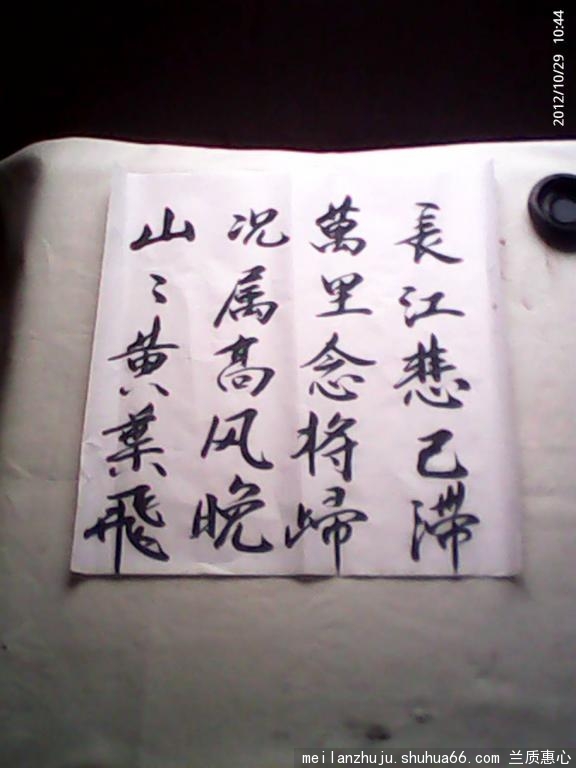 長江悲已滞
萬里念将歸
况属高风晚
山〻黄葉飛
2012/10/29 10:44
meilanzhuju.shuhua66.com 兰质惠心